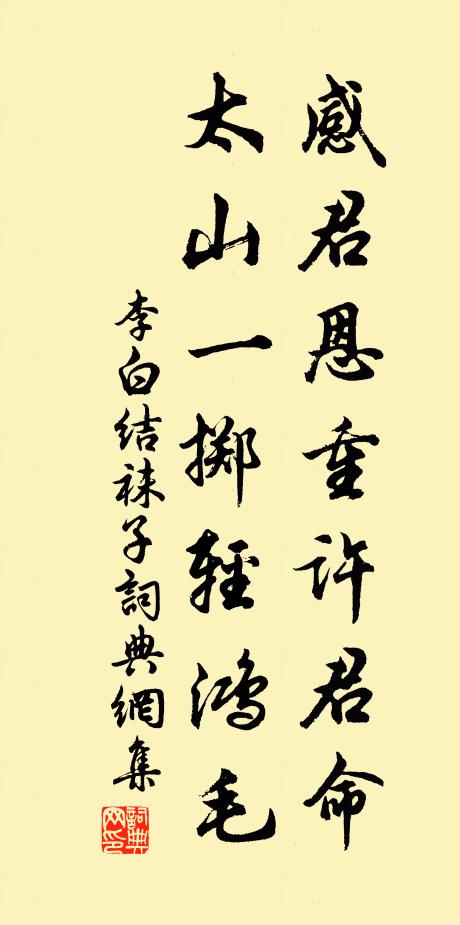 感君恩重許君命
太山一掷輕鴻毛
李白结袜子詞典網集
詞典網印